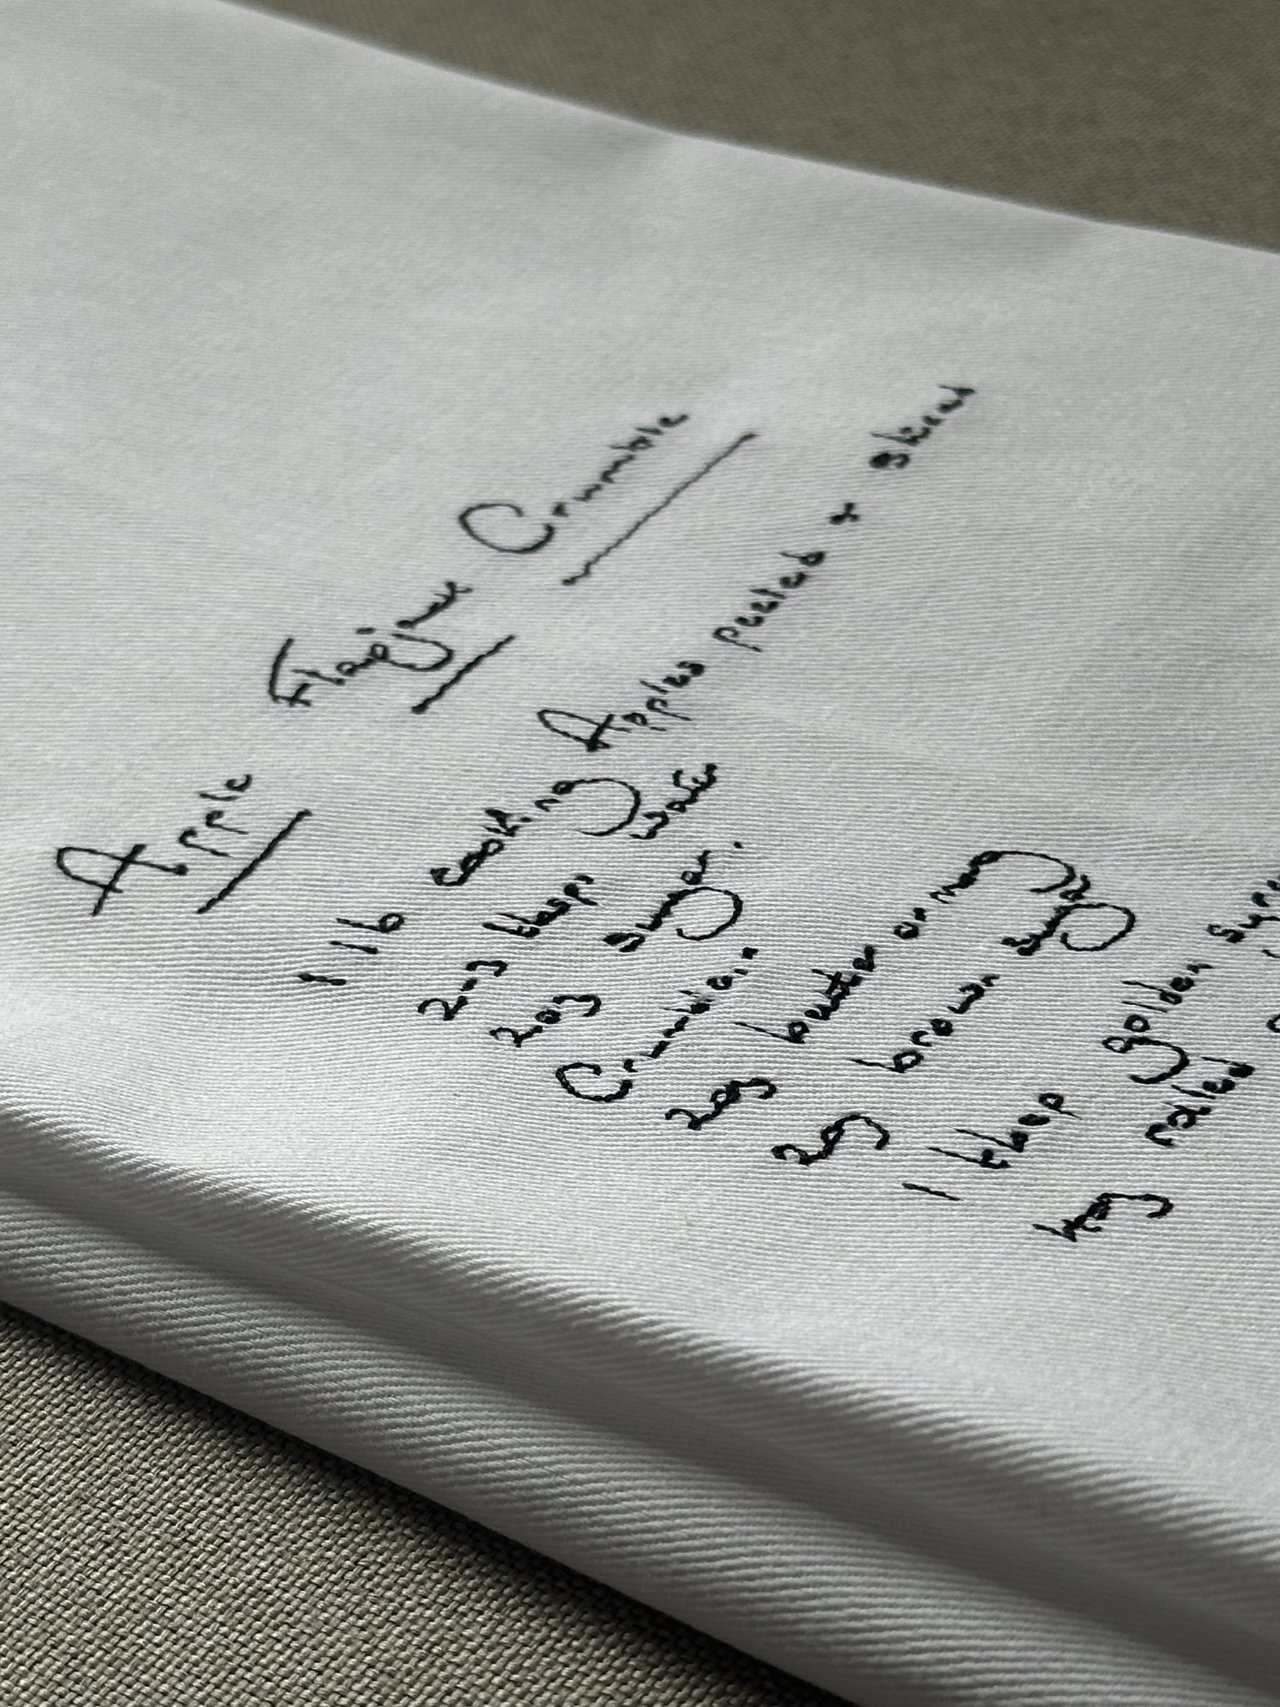 Apple Flapjack Crumble
1 lb cooking Apples peeled & sliced
2-3 tbsps water
2oz sugar.
Crumble:
2oz butter or marg
2oz brown sugar
1 tbsp golden
4oz rolled